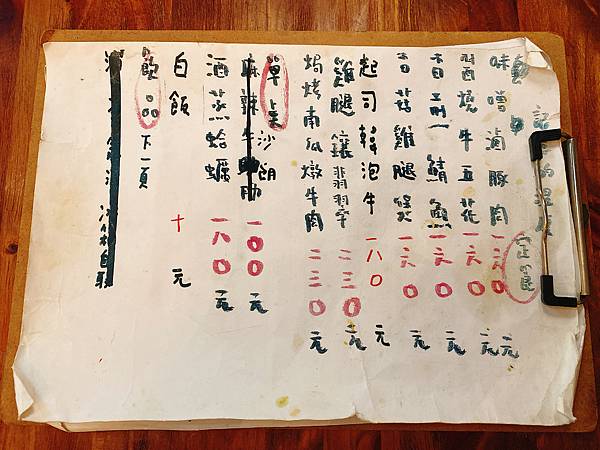 定食
味噌滷豚肉一六〇元
醬燒牛五花一六〇元
香煎鯖魚一六〇元
香菇雞腿煲一六〇元
起司韓泡牛一八〇元
雞腿鑲翡翠二三〇元
焗烤南瓜燉牛肉二三〇元
單點
麻辣牛 一〇〇元
沙朗
酒蒸蛤蠣一八〇元
白飯十元
飲品下一頁